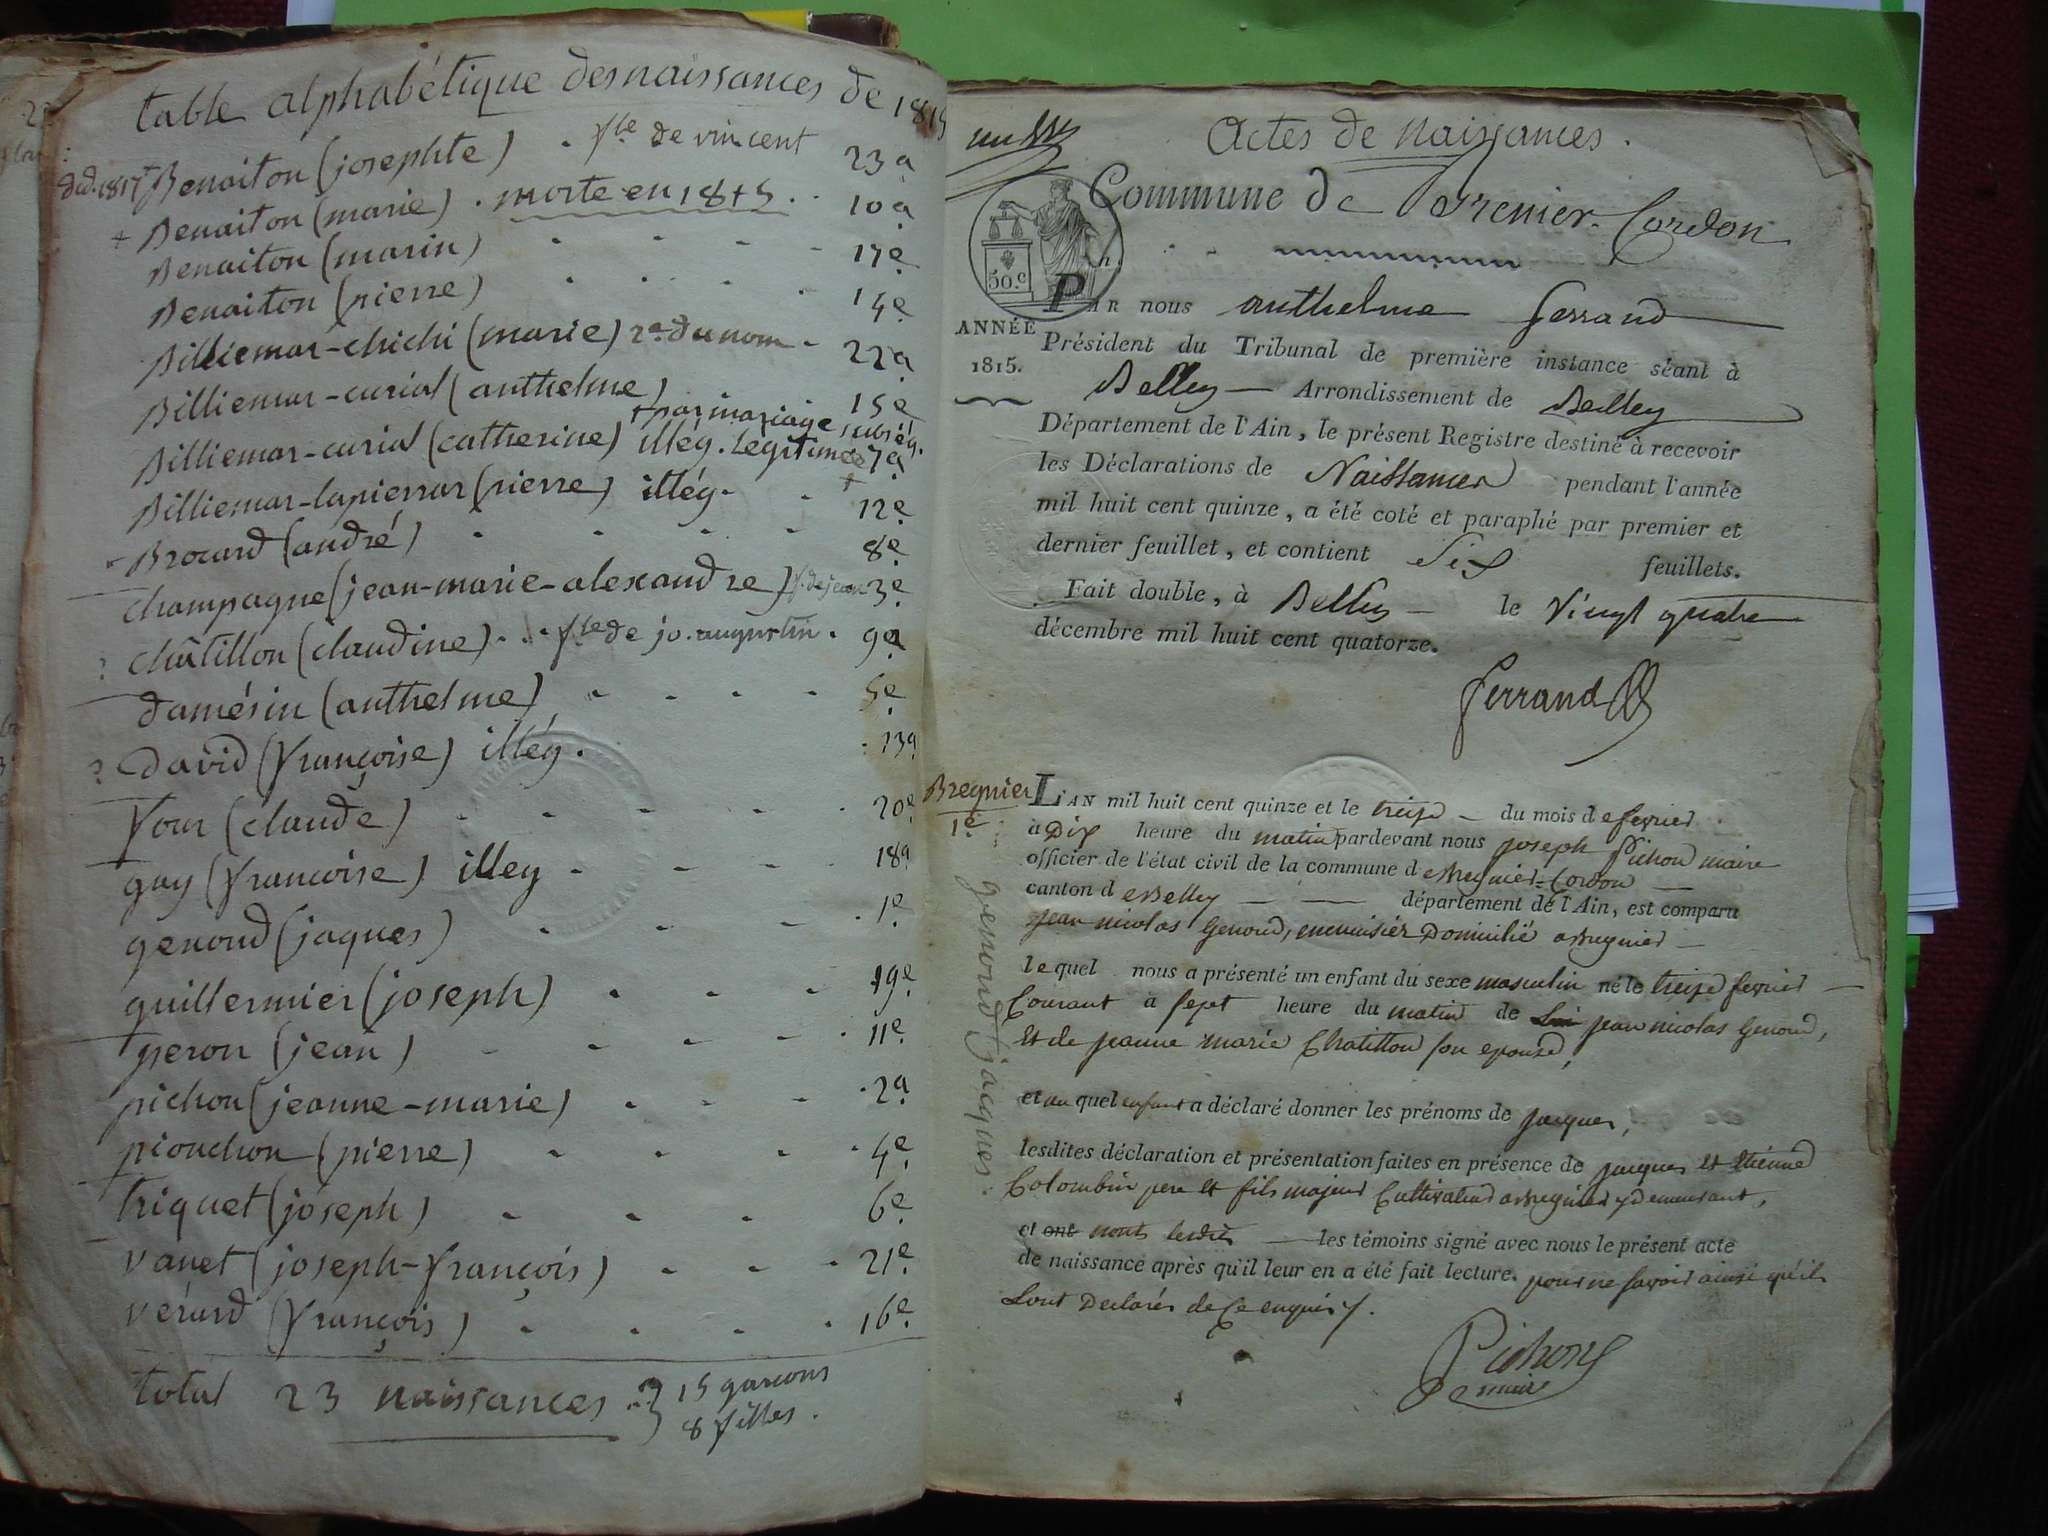 table alphabétique des naissances de 1815
déd. 1817 + Benaiton (josephte) . flle de vincent 23a
+ Benaiton (marie) . morte en 1815 . . 10a
Benaiton (marin) 17e
Benaiton (pierre) 14e
Billiemar-chichi (marie) 2e du nom . 22a
Billiemar-curial (anthelme) 15e
+ par mariage subség.
Billiemar-curial (catherine) illég. Légitimée 7a
Billiemar-lapierrar (pierre) illég. 12e
Brocard (andré) 8e
champagne (jean-marie-alexandre) f. de jean 3e
? châtillon (claudine) . . flle de jo. augustin . 9a
damésin (anthelme) 5e
? david (françoise) illég. 13a
four (claude) 20e
guy (françoise) illeg 18a
genoud (jaques) 1e
guillermier (joseph) 19e
peron (jean) 11e
pichon (jeanne-marie) 2a
piouchon (pierre) 4e
triquet (joseph) 6e
vanet (joseph-françois) 21e
vérard (françois) 16e
total 23 naissances } 15 garçons
8 filles.
Actes de Naissances.
Commune de Bregnier-Cordon
50.c
PAR nous anthelme ferrand
ANNÉE
1815.
Président du Tribunal de première instance séant à
Belley Arrondissement de Belley
Département de l'Ain, le présent Registre destiné à recevoir
les Déclarations de Naissances pendant l'année
mil huit cent quinze, a été coté et paraphé par premier et
dernier feuillet, et contient six feuillets.
Fait double, à Belley le vingt quatre
décembre mil huit cent quatorze.
ferrand
Bregnier
1e
L'AN mil huit cent quinze et le treize du mois de fevrier
à Dix heure du matin pardevant nous joseph Pichon maire
officier de l'état civil de la commune de Bregnier-Cordon
canton de Belley département de l'Ain, est comparu
jean nicolas Genoud, menuisier Domicilié a Bregnier
lequel nous a présenté un enfant du sexe masculin né le treize fevrier
Courant à sept heure du matin de lui jean nicolas Genoud,
et de jeanne marie Chatillon son epouse,
genoud jacques
et au quel enfant a déclaré donner les prénoms de jacques,
lesdites déclaration et présentation faites en présence de jacques et Etienne
Colombin pere et fils majeur Cultivateurs a Bregnier y demeurant,
et ont nont lesdits les témoins signé avec nous le présent acte
de naissance après qu'il leur en a été fait lecture. pour ne savoir ainsi qu'ils
sont Declarés de ce enquis
Pichon
maire